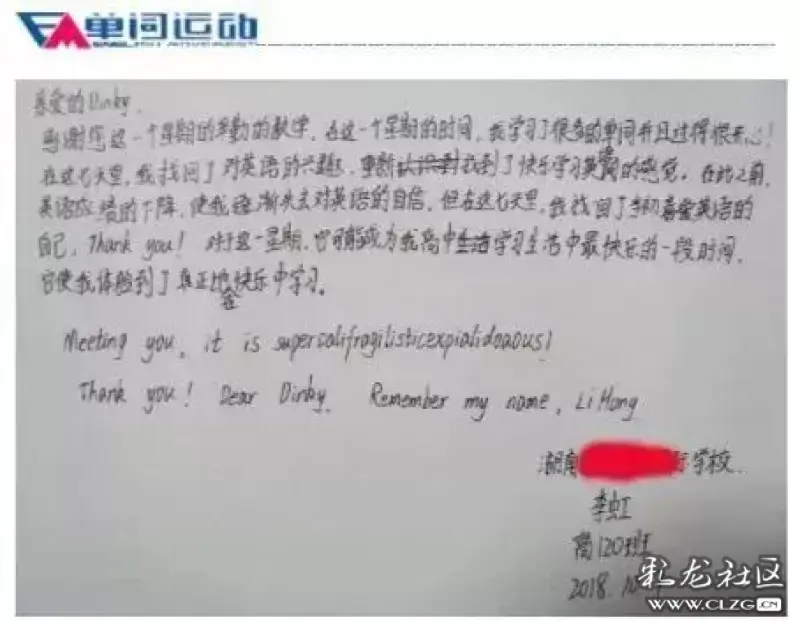 单词运动
ENGLISH MOVEMENT
亲爱的Dinky,
感谢您这一个星期的辛勤的教学,在这一个星期的时间,我学习了很多的单词并且过得很开心!
在这七天里,我找回了对英语的兴趣,重新认识到找到了快乐学习英语的感觉。在此之前,
英语成绩的下降,使我逐渐失去对英语的自信,但在这七天里,我找回了当初喜爱英语的
自己,Thank you! 对于这一星期,它可能成为我高中生活学习生活中最快乐的一段时间,
它使我体验到了真正地在快乐中学习。
Meeting you, it is supersalifragilisticexpialidoaous!
Thank you! Dear Dinky. Remember my name, Li Hong
湖南 学校
李虹
高120班
2018.10
彩龙社区
WWW.CLZG.CN